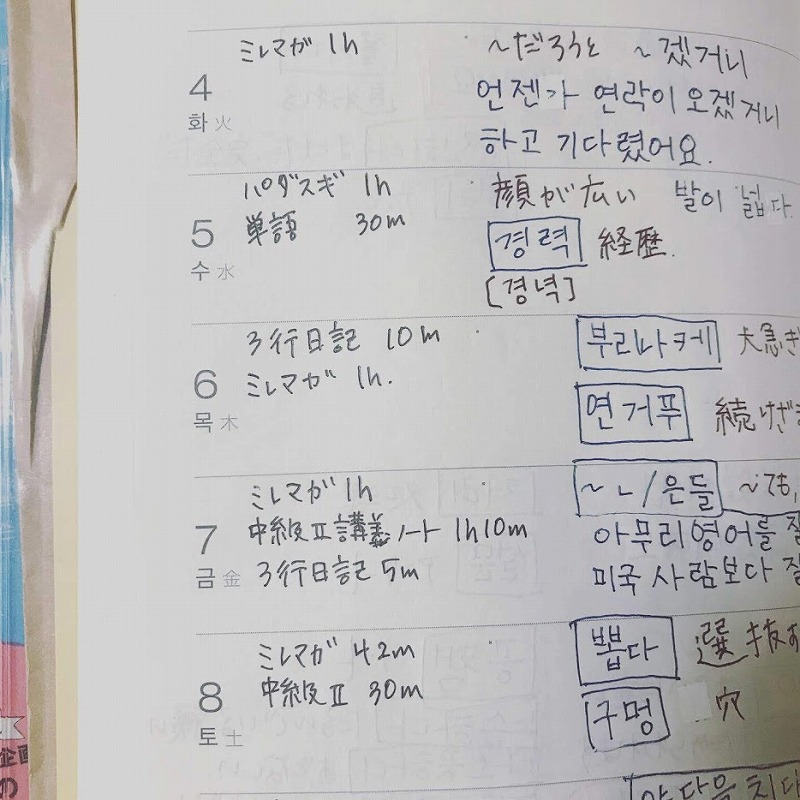 ミレマガ 1h
4
화 火
~だろうと ~겠거니
언젠가 연락이 오겠거니
하고 기다렸어요.
パダスギ 1h
単語 30m
5
수 水
顔が広い 발이 넓다.
경력 経歴.
[경녁]
3行日記 10m
ミレマガ 1h.
6
목 木
부리나케 大急ぎ
연거푸 続けざま
ミレマガ 1h
中級Ⅱ講義ノート 1h10m
3行日記 5m
7
금 金
~ㄴ/은들 ~ても,
아무리 영어를 잘
미국 사람보다 잘
ミレマガ 42m
中級Ⅱ 30m
8
토 土
뽑다 選 抜す
구멍 穴
企画
の